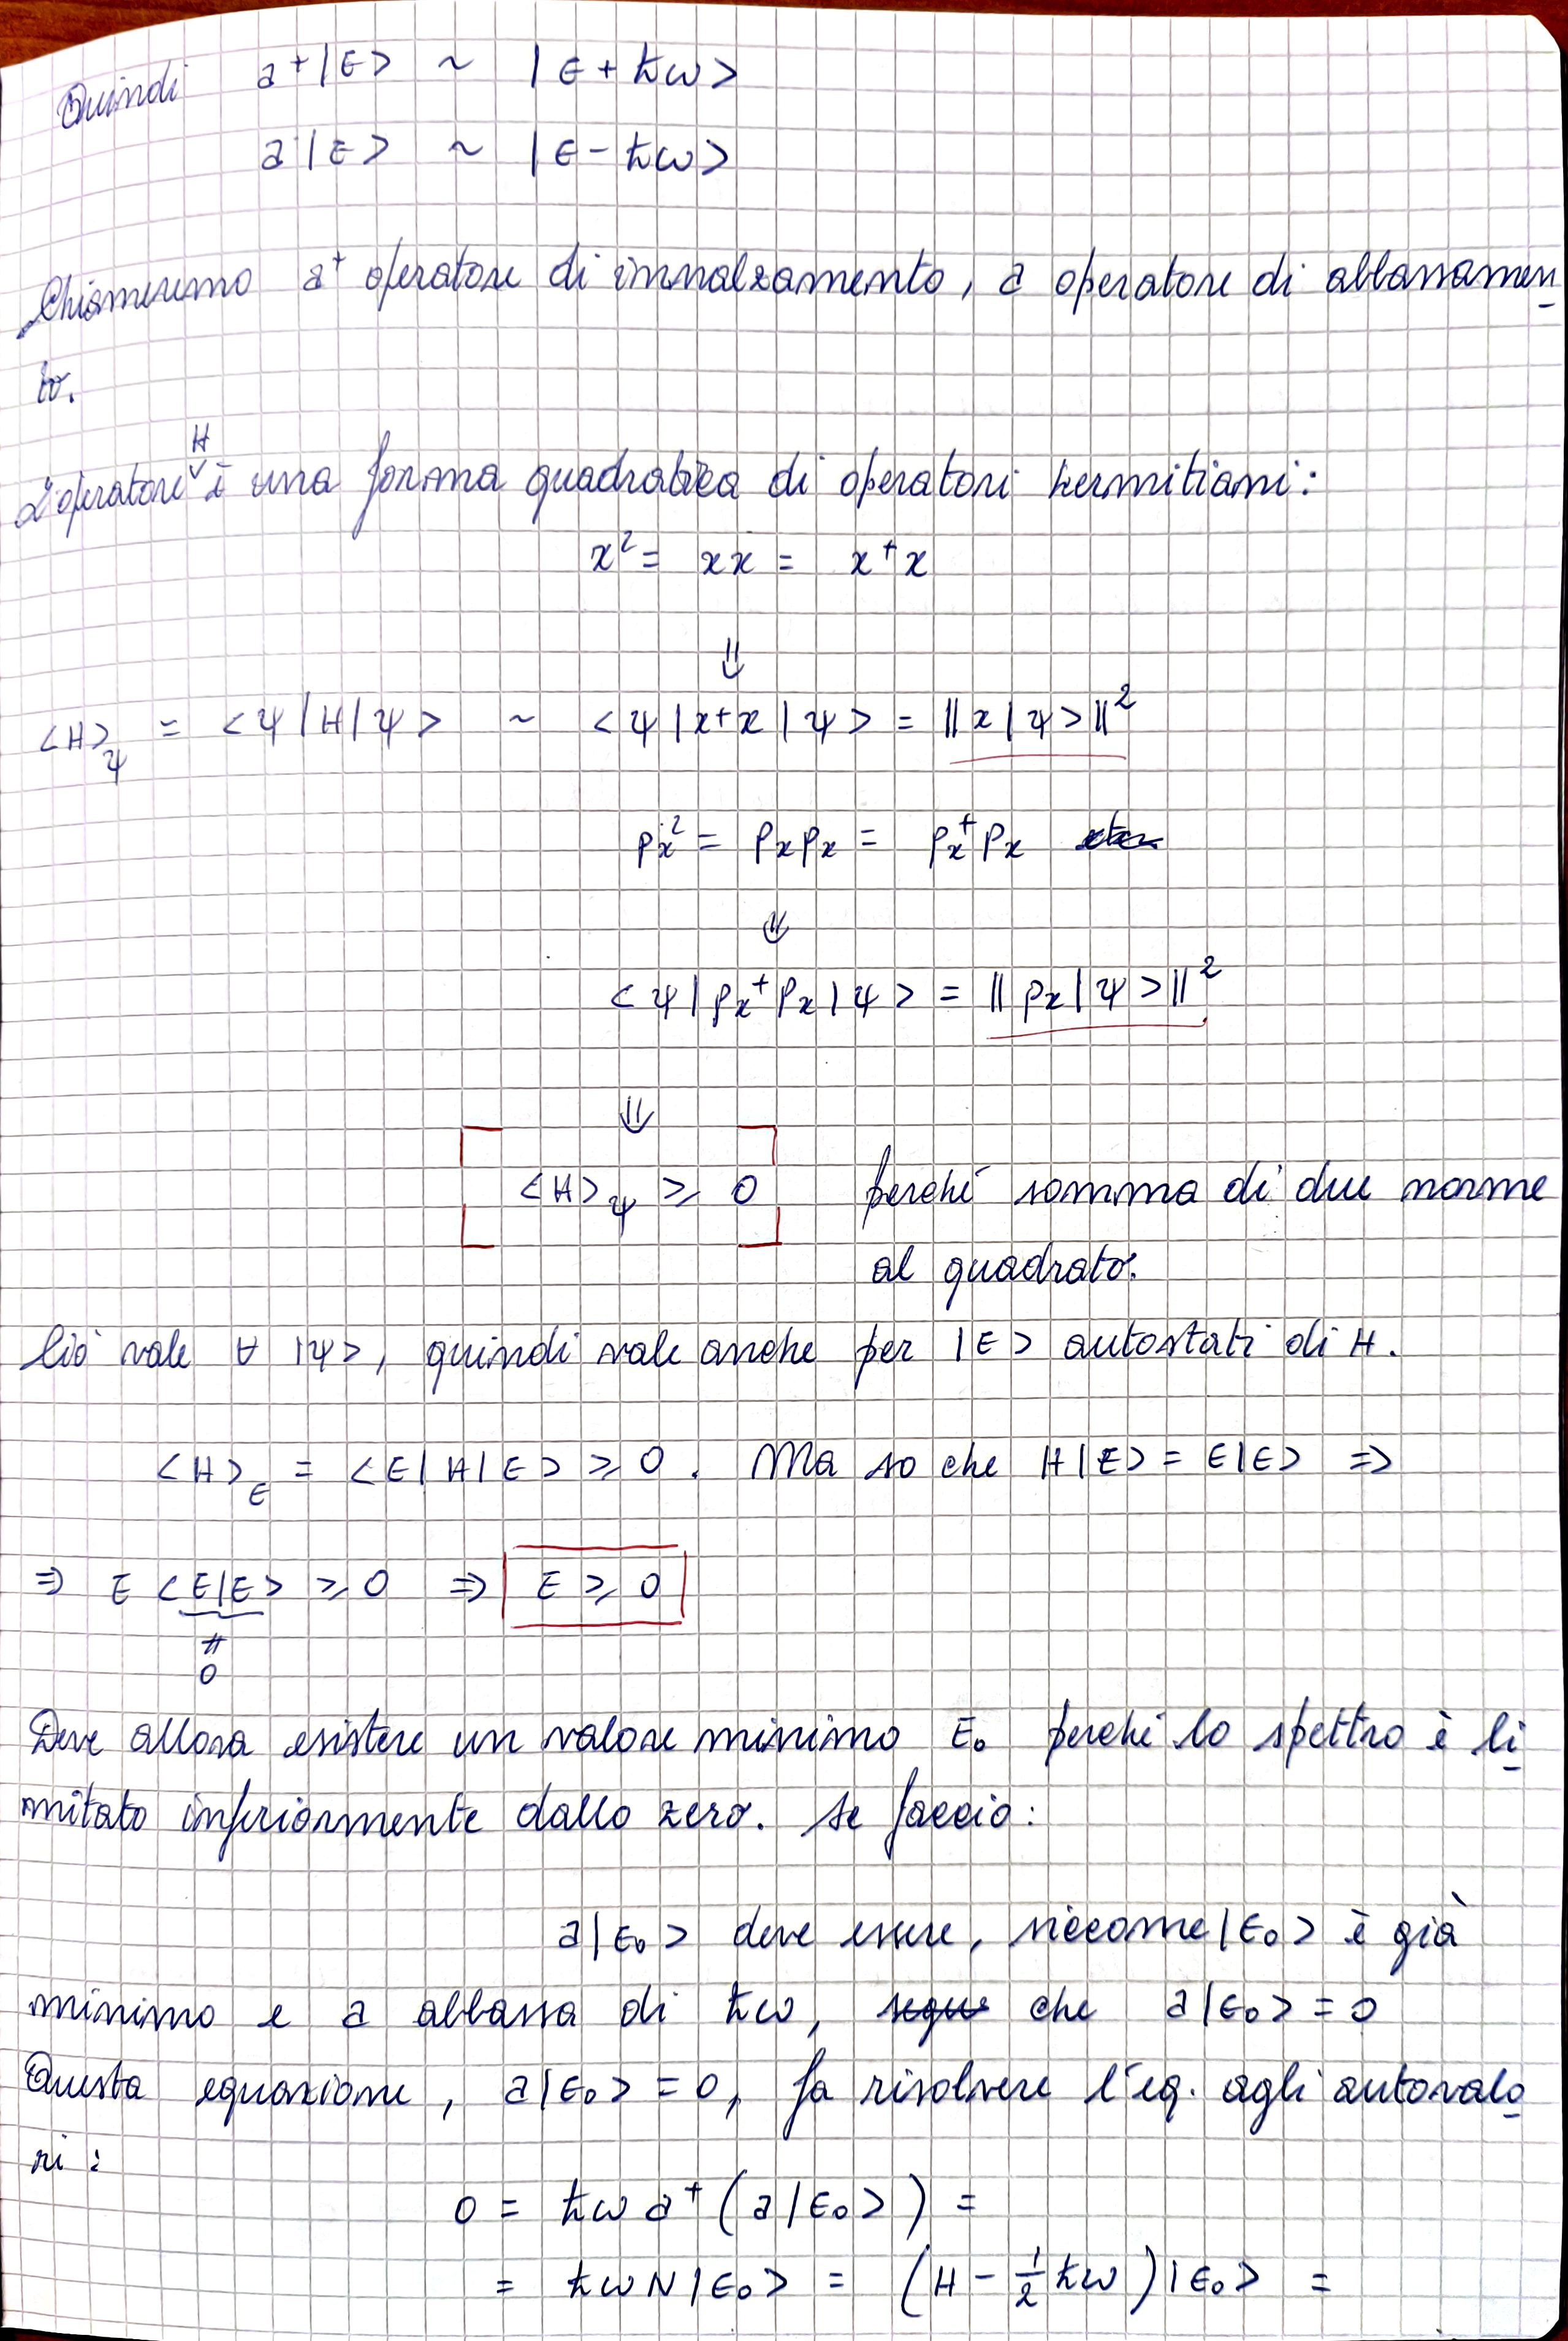 Quindi a⁺|E> ~ |E + ħω>
a|E> ~ |E - ħω>
Chiameremo a⁺ operatore di innalzamento, a operatore di abbassamen
to.
L'operatore H è una forma quadratica di operatori hermitiani:
x² = xx = x⁺x
⇓
<H>_ψ = <ψ|H|ψ> ~ <ψ|x⁺x|ψ> = ||x|ψ>||²
pₓ² = pₓpₓ = pₓ⁺pₓ
⇓
<ψ|pₓ⁺pₓ|ψ> = ||pₓ|ψ>||²
⇓
<H>_ψ ≥ 0 perché somma di due norme
al quadrato.
Ciò vale ∀ |ψ>, quindi vale anche per |E> autostati di H.
<H>_E = <E|H|E> ≥ 0. Ma so che H|E> = E|E> ⇒
⇒ E <E|E> ≥ 0 ⇒ E ≥ 0
≠
0
Deve allora esistere un valore minimo E₀ perché lo spettro è li
mitato inferiormente dallo zero. Se faccio:
a|E₀> deve essere, siccome |E₀> è già
minimo e a abbassa di ħω, segue che a|E₀> = 0
Questa equazione, a|E₀> = 0, fa risolvere l'eq. agli autovalo
ri:
0 = ħω a⁺(a|E₀>) =
= ħωN|E₀> = (H - 1/2 ħω)|E₀> =